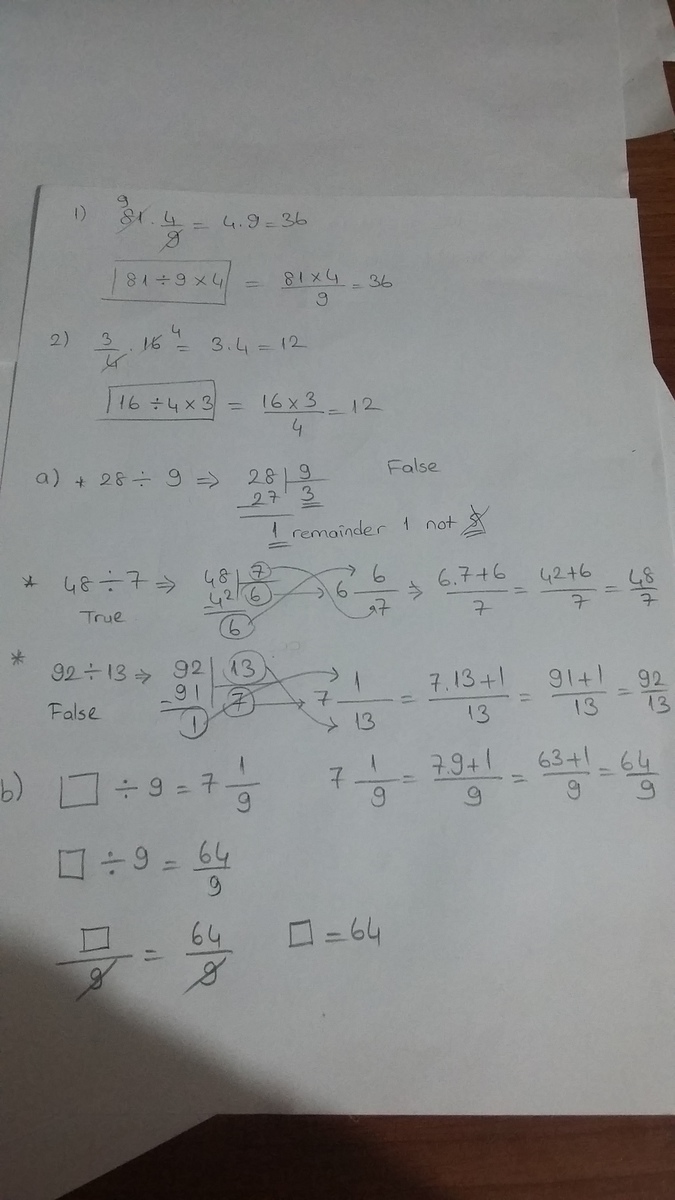 1) 81 9 . 4/9 = 4.9 = 36
81 ÷ 9 × 4 = 81 × 4 / 9 = 36
2) 3/4 . 16 4 = 3.4 = 12
16 ÷ 4 × 3 = 16 × 3 / 4 = 12
a) + 28 ÷ 9 ⇒ 28 | 9 False
27 3
1 remainder 1 not
* 48 ÷ 7 ⇒ 48 | 7 6 6/7 ⇒ 6.7+6 / 7 = 42+6 / 7 = 48/7
True - 42 6
6
* 92 ÷ 13 ⇒ 92 | 13 7 1/13 = 7.13+1 / 13 = 91+1 / 13 = 92/13
False - 91 7
1
b) □ ÷ 9 = 7 1/9 7 1/9 = 7.9+1 / 9 = 63+1 / 9 = 64/9
□ ÷ 9 = 64/9
□/9 = 64/9 □ = 64